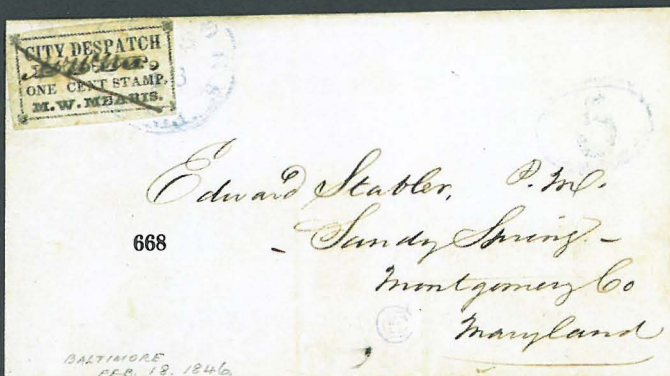 CITY DESPATCH
ONE CENT STAMP.
M. W. MEARIS.
5
Edward Stabler, P. M.
668
- Sandy Spring -
Montgomery Co
Maryland
BALTIMORE
FEB. 18. 1846